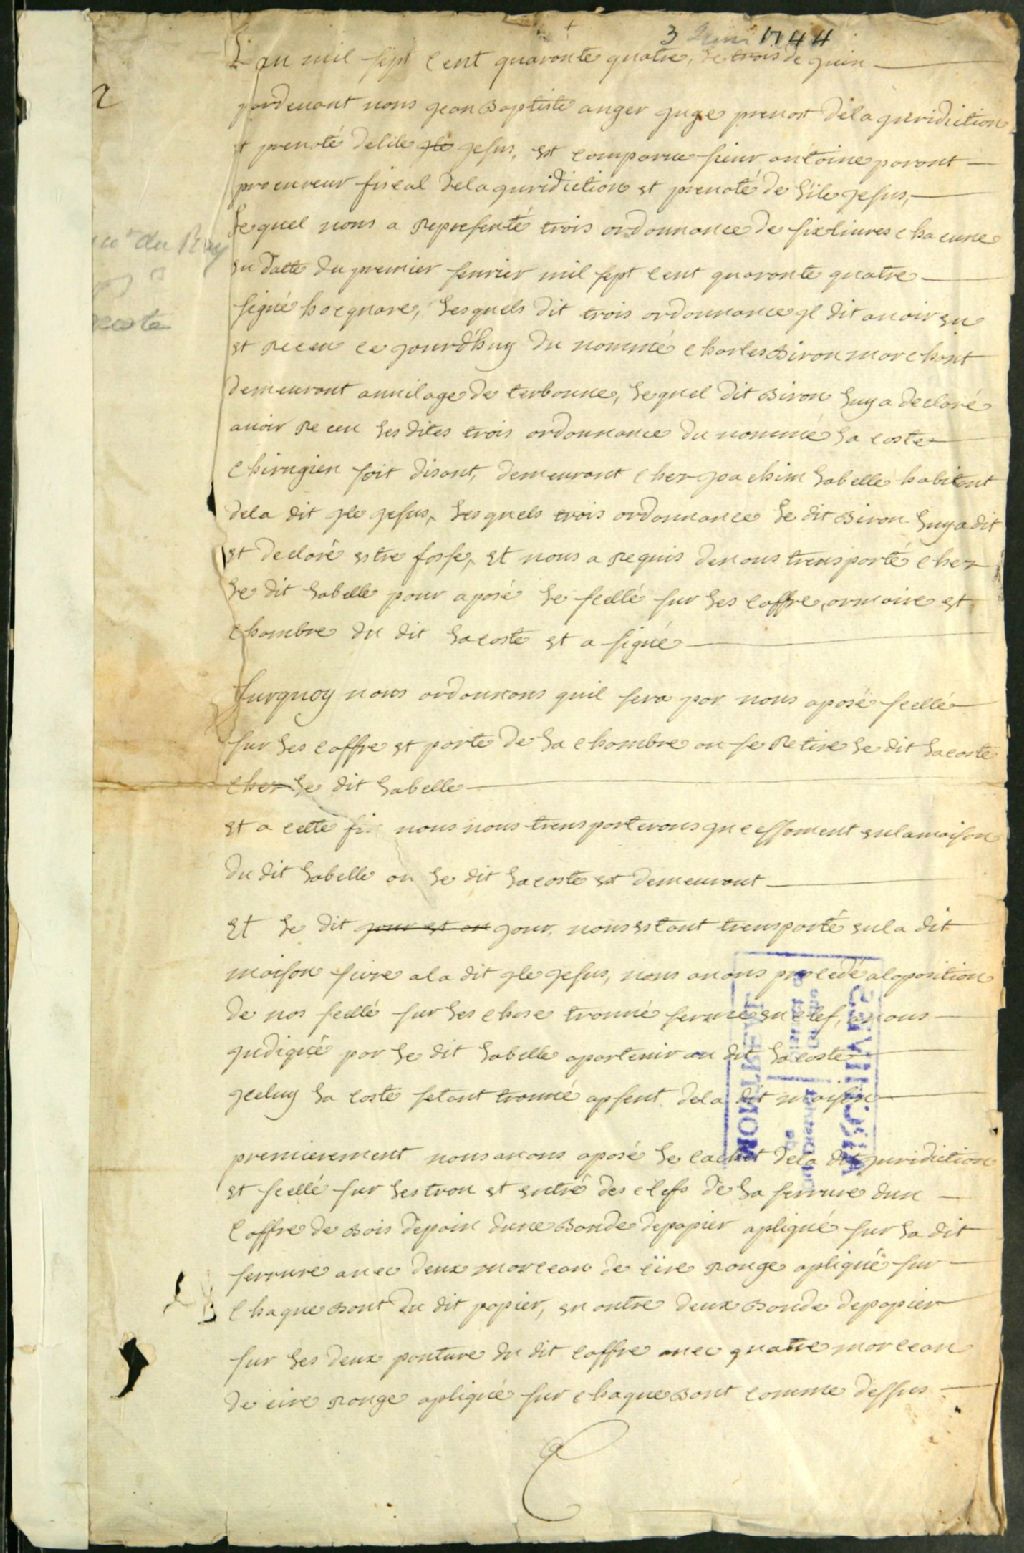 3 Juin 1744
L'an mil sept cent quaronte quatre, le trois de juin
pardeuant nous Jean Baptiste auger juge preuost dela juridiction
et preuoté delile jesus, est comparue sieur antoine paront
procureur fiscal dela juridiction et preuoté de l'ile jesus,
lequel nous a Representé trois ordonnance de six liures chacune
en datte du premier feurier mil sept cent quaronte quatre
signé hocquare, lesquels dit trois ordonnance jl dit auoir eu
et Receu ce jourd'huy du nommé charles Biron marchont
demeuront auuilage de terbonne, lequel dit Biron luy a declaré
auoir Receu les dites trois ordonnance du nommé la coste
chirugien soit disont, demeuront chez joachim labelle habitont
dela dit jle jesus, lesquels trois ordonnance le dit Biron luy a dit
et declaré estre fosse, et nous a Requis denous transporté chez
le dit labelle pour aposé le scellé sur les coffre, ormoire et
chombre du dit lacoste et a signé
surquoy nous ordonnons quil sera par nous aposé scellé
sur les coffre et porte de la chombre ou se Retire le dit lacoste
chez le dit labelle
et a cette fin nous nous transporterons jncessament enlamaison
du dit labelle ou le dit lacoste est demeuront
et le dit jour et an jour, nous estant transporté enla dit
maison size a la dit jle jesus, nous auons procedé alaposition
de nos scellé sur les chose trouué fermé en clef, a nous
jndiqué par le dit labelle apartenir au dit lacoste
jceluy la coste setant trouué apsent dela dit maison
premierement nous auons aposé le cachet dela dit juridiction
et scellé sur les trou et entré des clefs de la serrure dun
coffre de Bois depain dune Bonde depapier apliqué sur la dit
serrure auec deux morceau de cire Rouge apliqué sur
chaque Bout du dit papier, en outre deux Bonde depapier
sur les deux ponture du dit coffre auec quatre morceau
de cire Rouge apliqué sur chaque Bout comme dessus
du Roy
MONTRÉAL
ARCHIVES